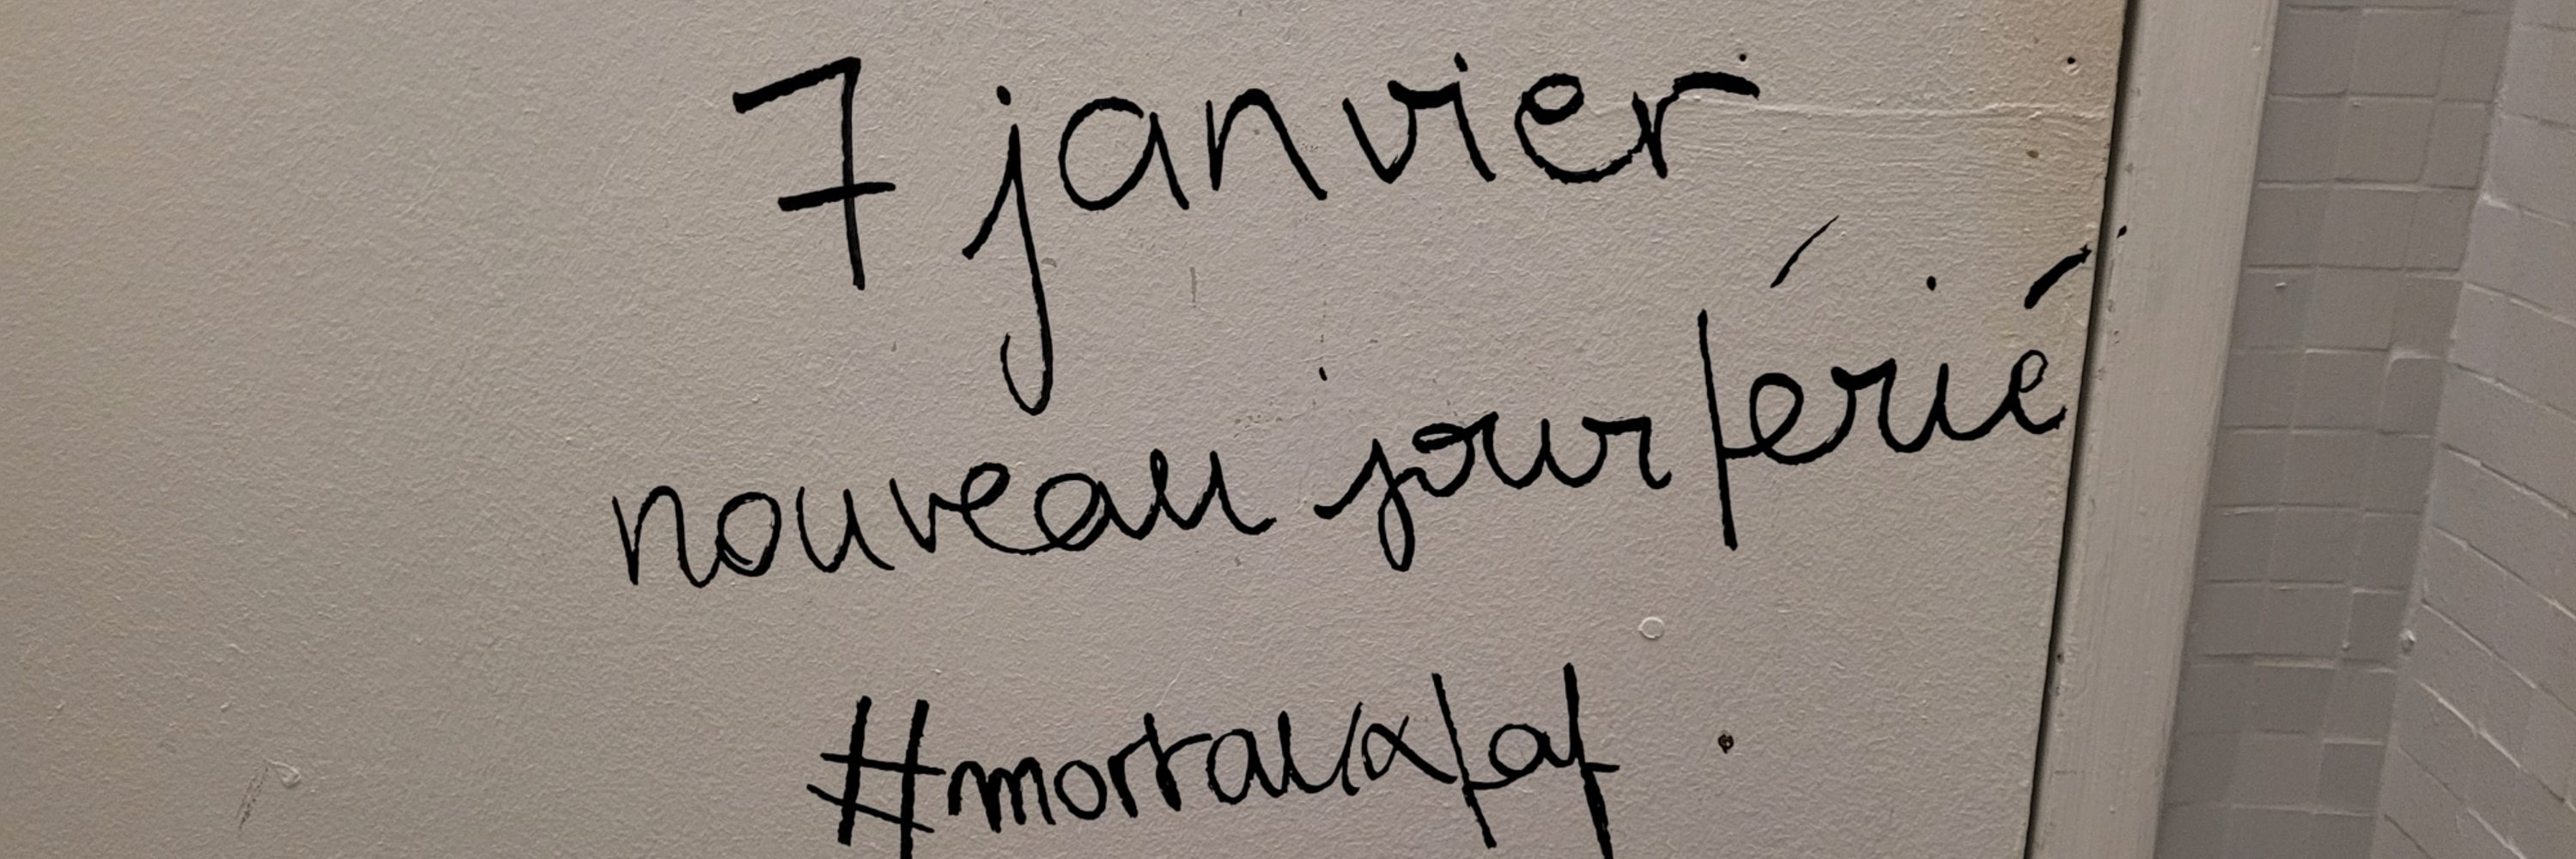 7 janvier
nouveau jour férié
#mortauxfaf